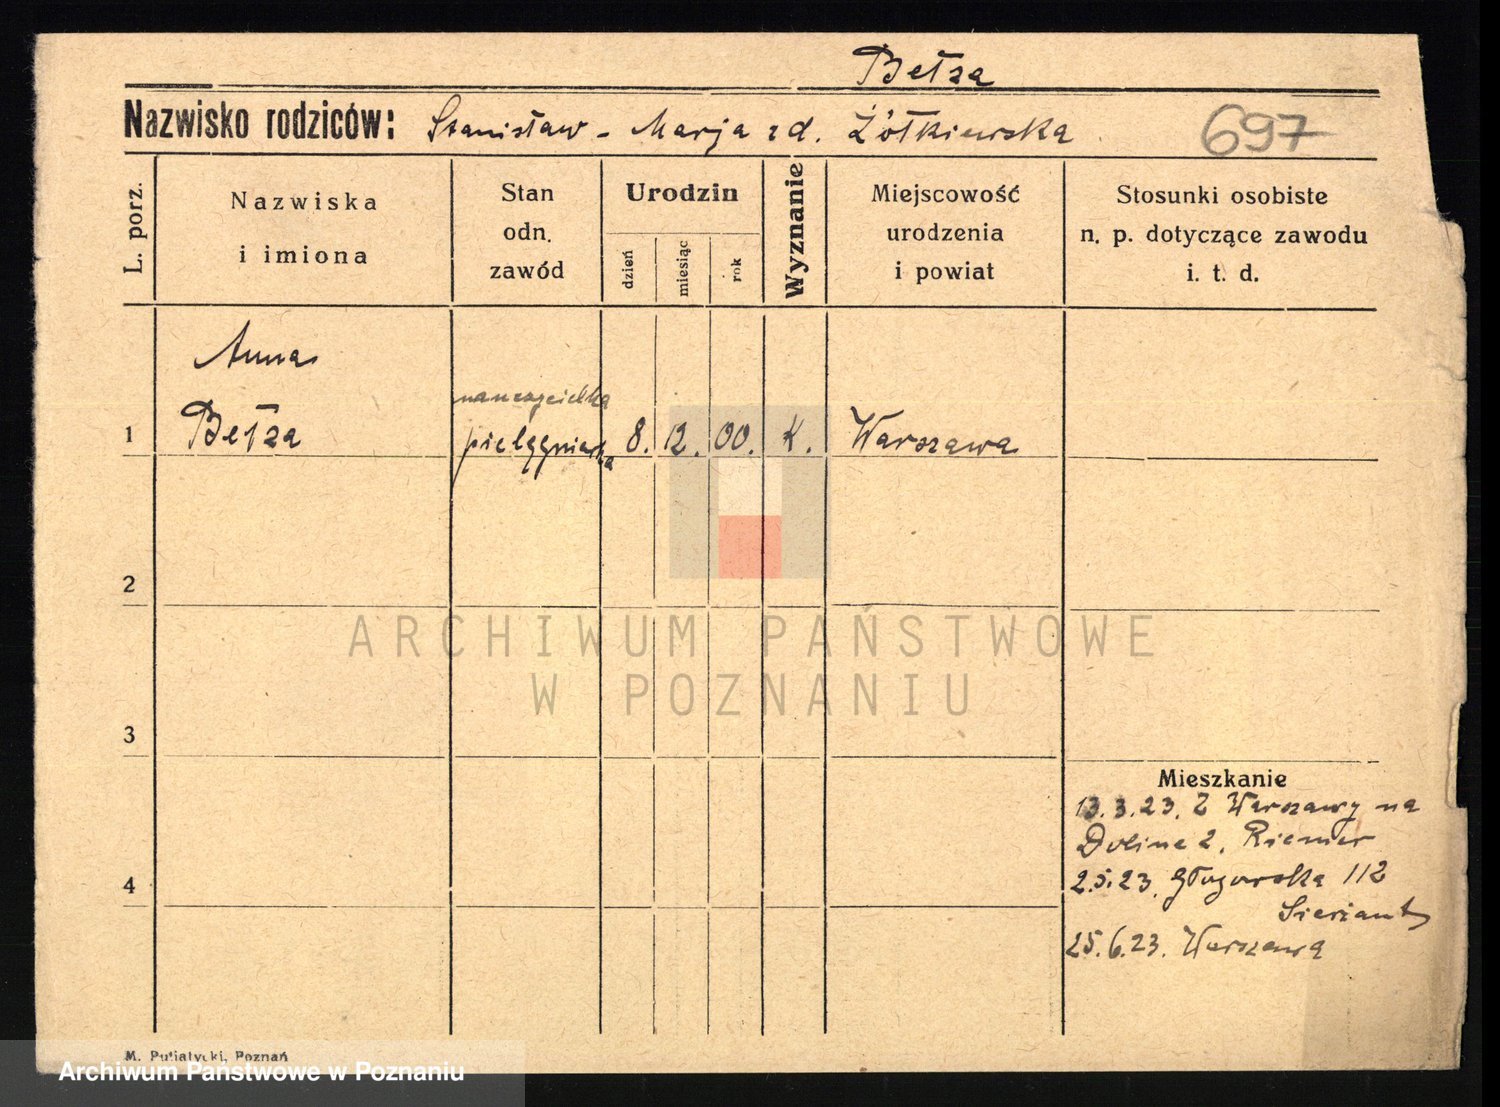 Bełza
Nazwisko rodziców: Stanisław - Marja zd. Żółkiewska
697
L. porz.
Nazwiska
i imiona
Stan
odn.
zawód
Urodzin
dzień
miesiąc
rok
Wyznanie
Miejscowość
urodzenia
i powiat
Stosunki osobiste
n. p. dotyczące zawodu
i. t. d.
Anna
nauczycielka
1 Bełza pielęgniarka 8. 12. 00. K. Warszawa
2
ARCHIWUM PAŃSTWOWE
W POZNANIU
3
Mieszkanie
13.3.23. Z Warszawy na
Dolinę 2, Riemer
4
2.5.23. Głogowska 112
25.6.23. Warszawa
M. Putiatycki, Poznań
Archiwum Państwowe w Poznaniu